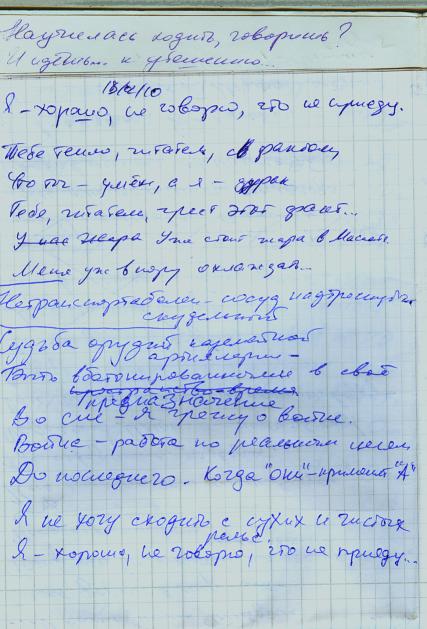 Научилась ходить, говоришь?
И идёшь.. к утешению...
Я – хорошо, не говорю, что не приеду.
Тебе тепло, читатель, с фактом,
Что ты – умён, а я – дурак
Тебе, читатель, греет этот факт...
У нас жара Уже стоит жара в
Меня уж впору охлаждать...
Нетранспортабелен – сосуд надтреснутый
скудельный
Судьба орудий
артиллерии –
Быть вбетонированными в своё
пространство-время
предназначение
Во сне – Я грежу о войне.
Война – работа по реальным целям
До последнего. Когда "они" – примют "А"
Я не хочу сходить с сухих и чистых
рельс.
Я – хорошо, не говорю, что не приеду...